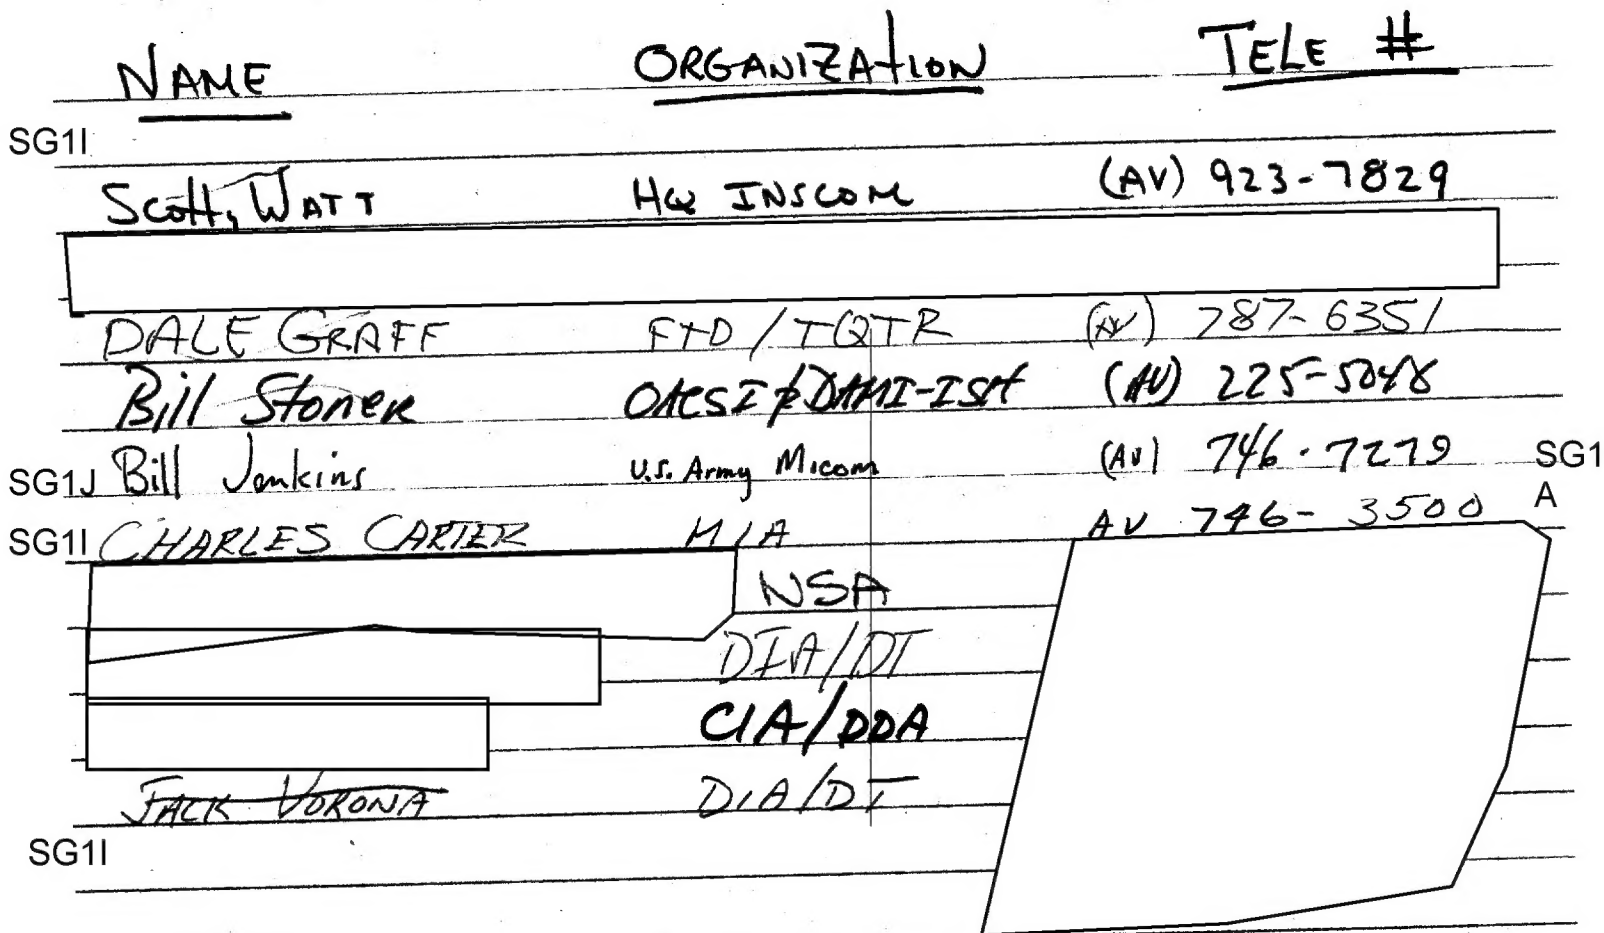 NAME ORGANIZATION TELE #
SG1I
Scott, WATT HQ INSCOM (AV) 923-7829
DALE GRAFF FTD/TQTR (AV) 787-6351
Bill Stoner OACSI DAMI-ISH (AV) 225-5048
SG1J Bill Jenkins U.S. Army Micom (AV) 746-7279 SG1
A
SG1I CHARLES CARTER MIA AV 746-3500
NSA
DIA/DT
CIA/DDA
JACK VORONA DIA/DT
SG1I